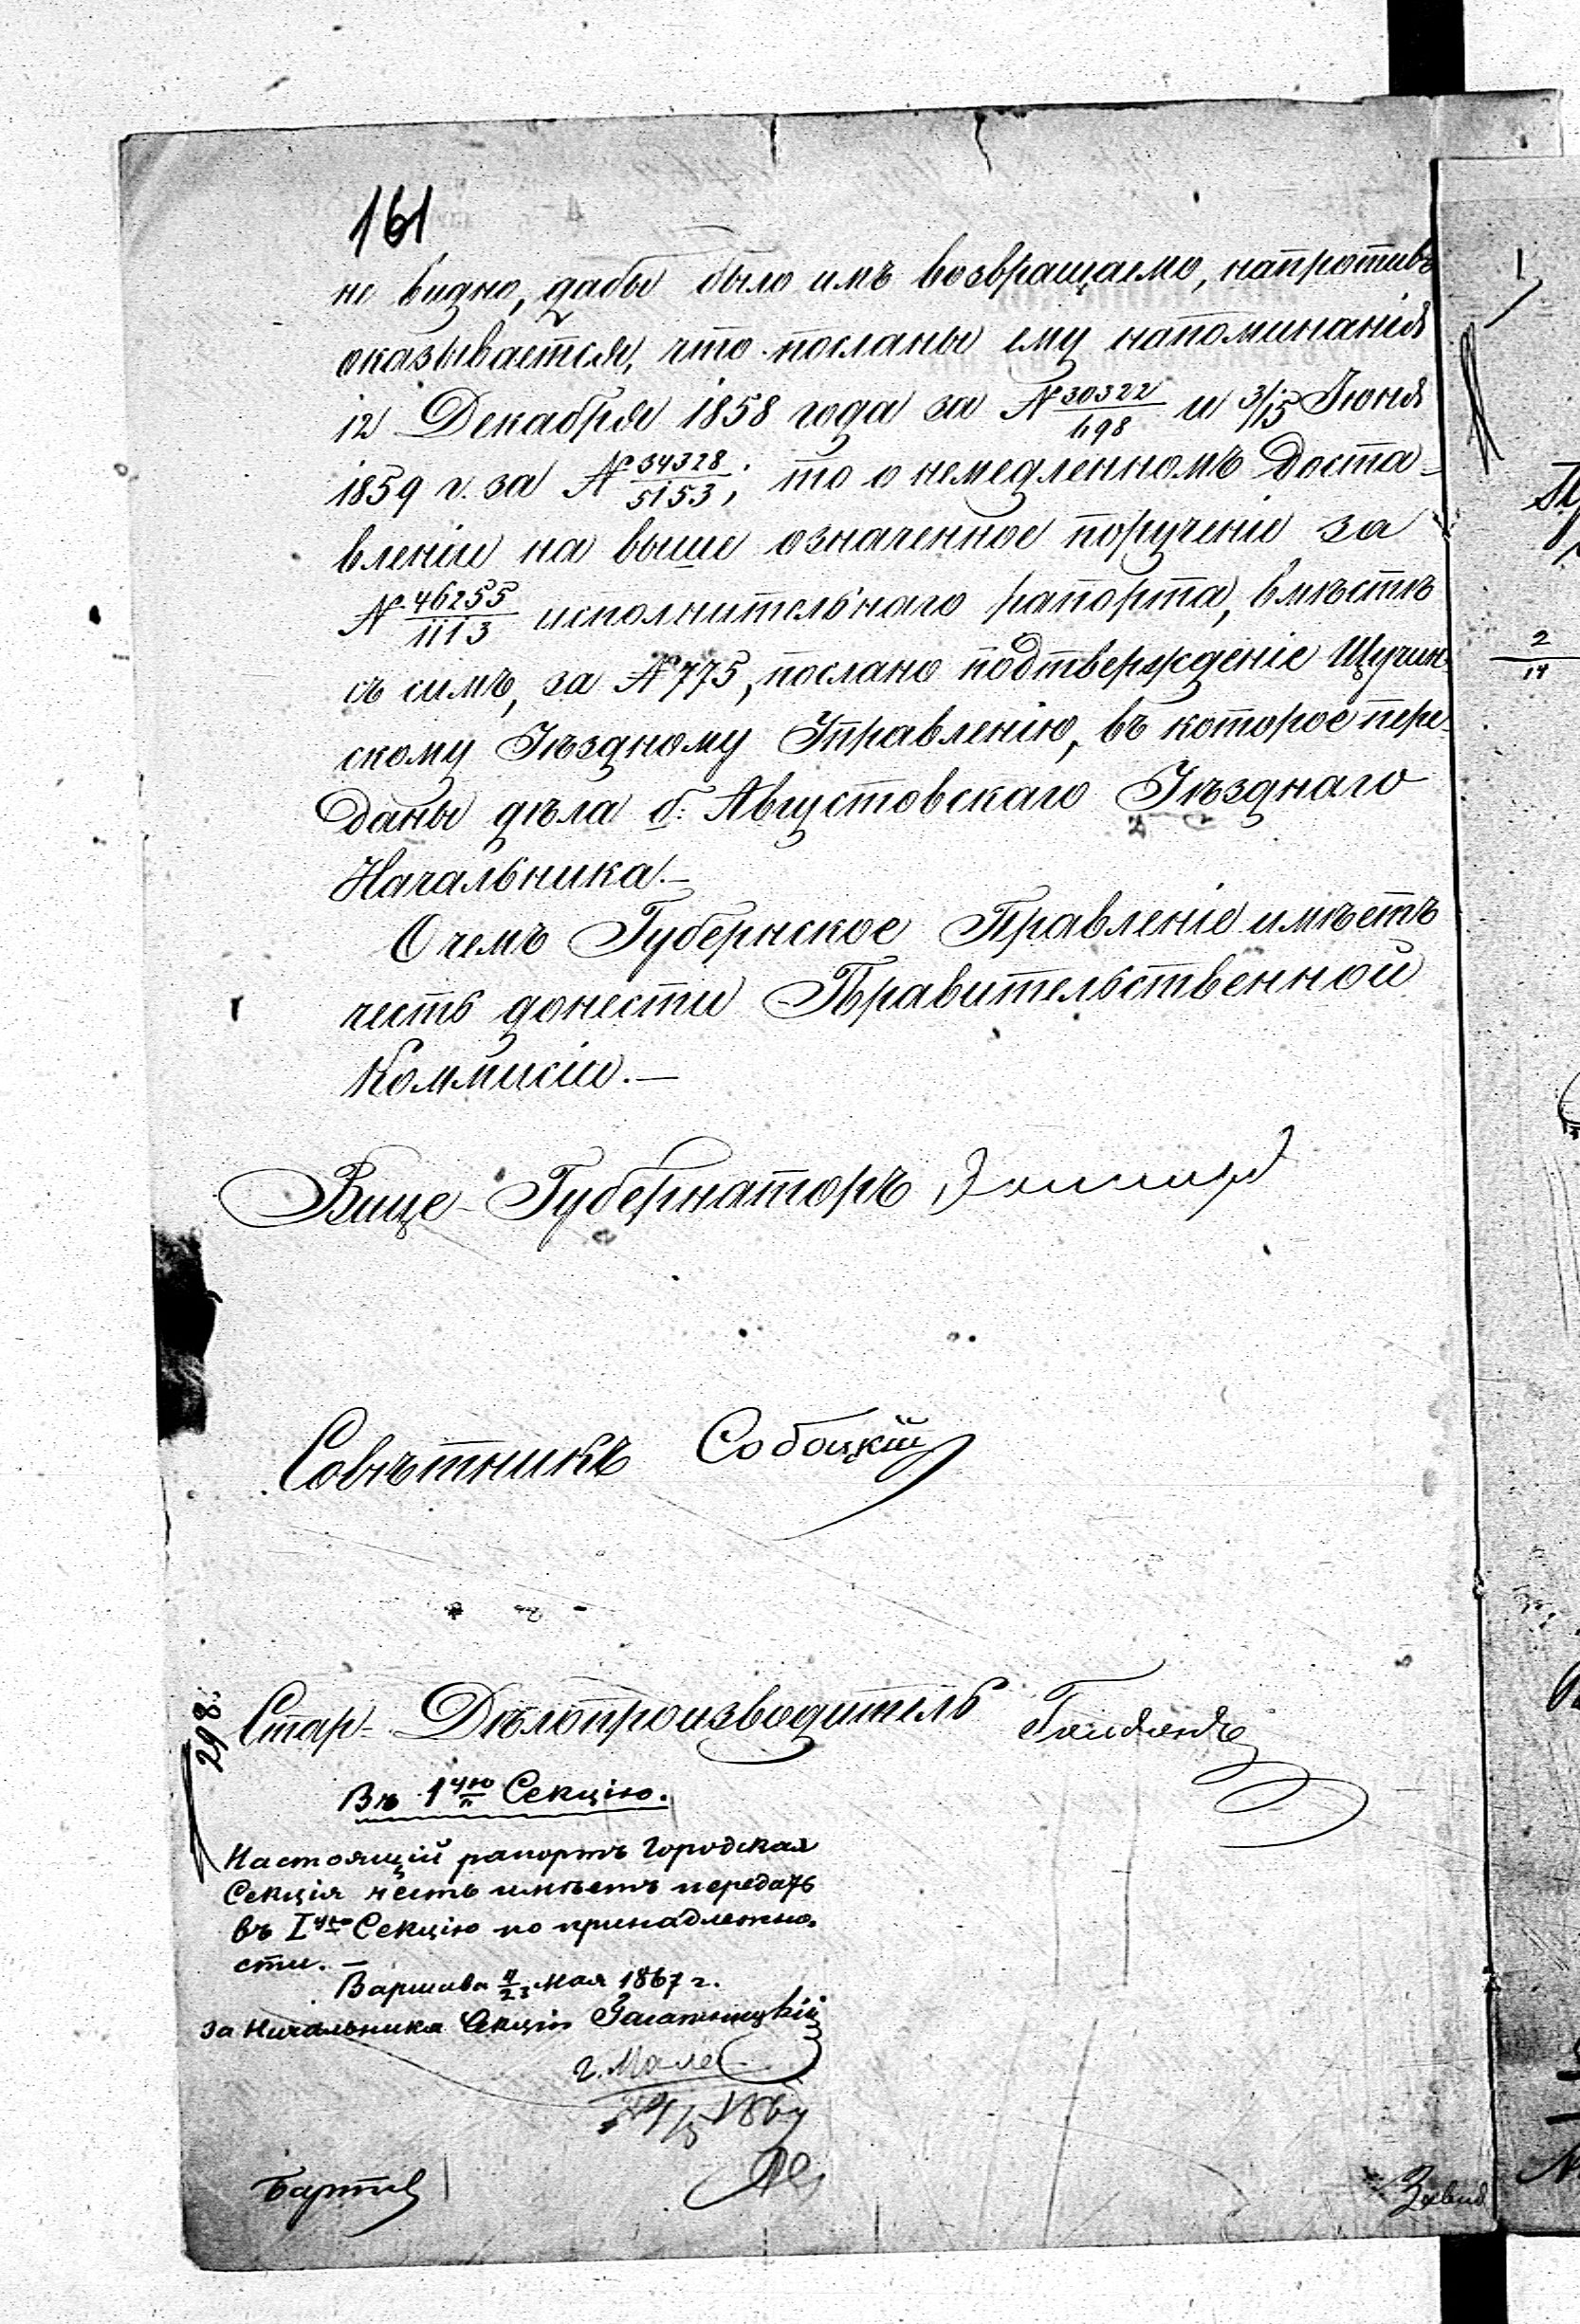 161
не видно, дабы было имъ возвращаемо, напротивъ
оказывается, что посланы ему напоминанія
12 Декабря 1858 года за № 30322/698 и 3/15 Іюня
1859 г. за № 34328/5153; то о немедленномъ доста-
вленіи на выше означенное порученіе за
№ 46255/1113 исполнительнаго рапорта, вмѣстѣ
съ симъ, за № 775, послано подтвержденіе Щучин-
скому Уѣздному Управленію, въ которое пере-
даны дѣла б: Августовскаго Уѣзднаго
Начальника.—
О чемъ Губернское Правленіе имѣетъ
честь донести Правительственной
Коммисіи.—
Вице-Губернаторъ
Совѣтникъ Собоцкій
Стар- Дѣлопроизводитель
298.
Въ 1ую Секцію.
Настоящій рапортъ Городская
Секція честь имѣетъ передать
въ Iую Секцію по принадлежно-
сти.—
Варшава 11/23 Мая 1867 г.
За Начальника Секціи